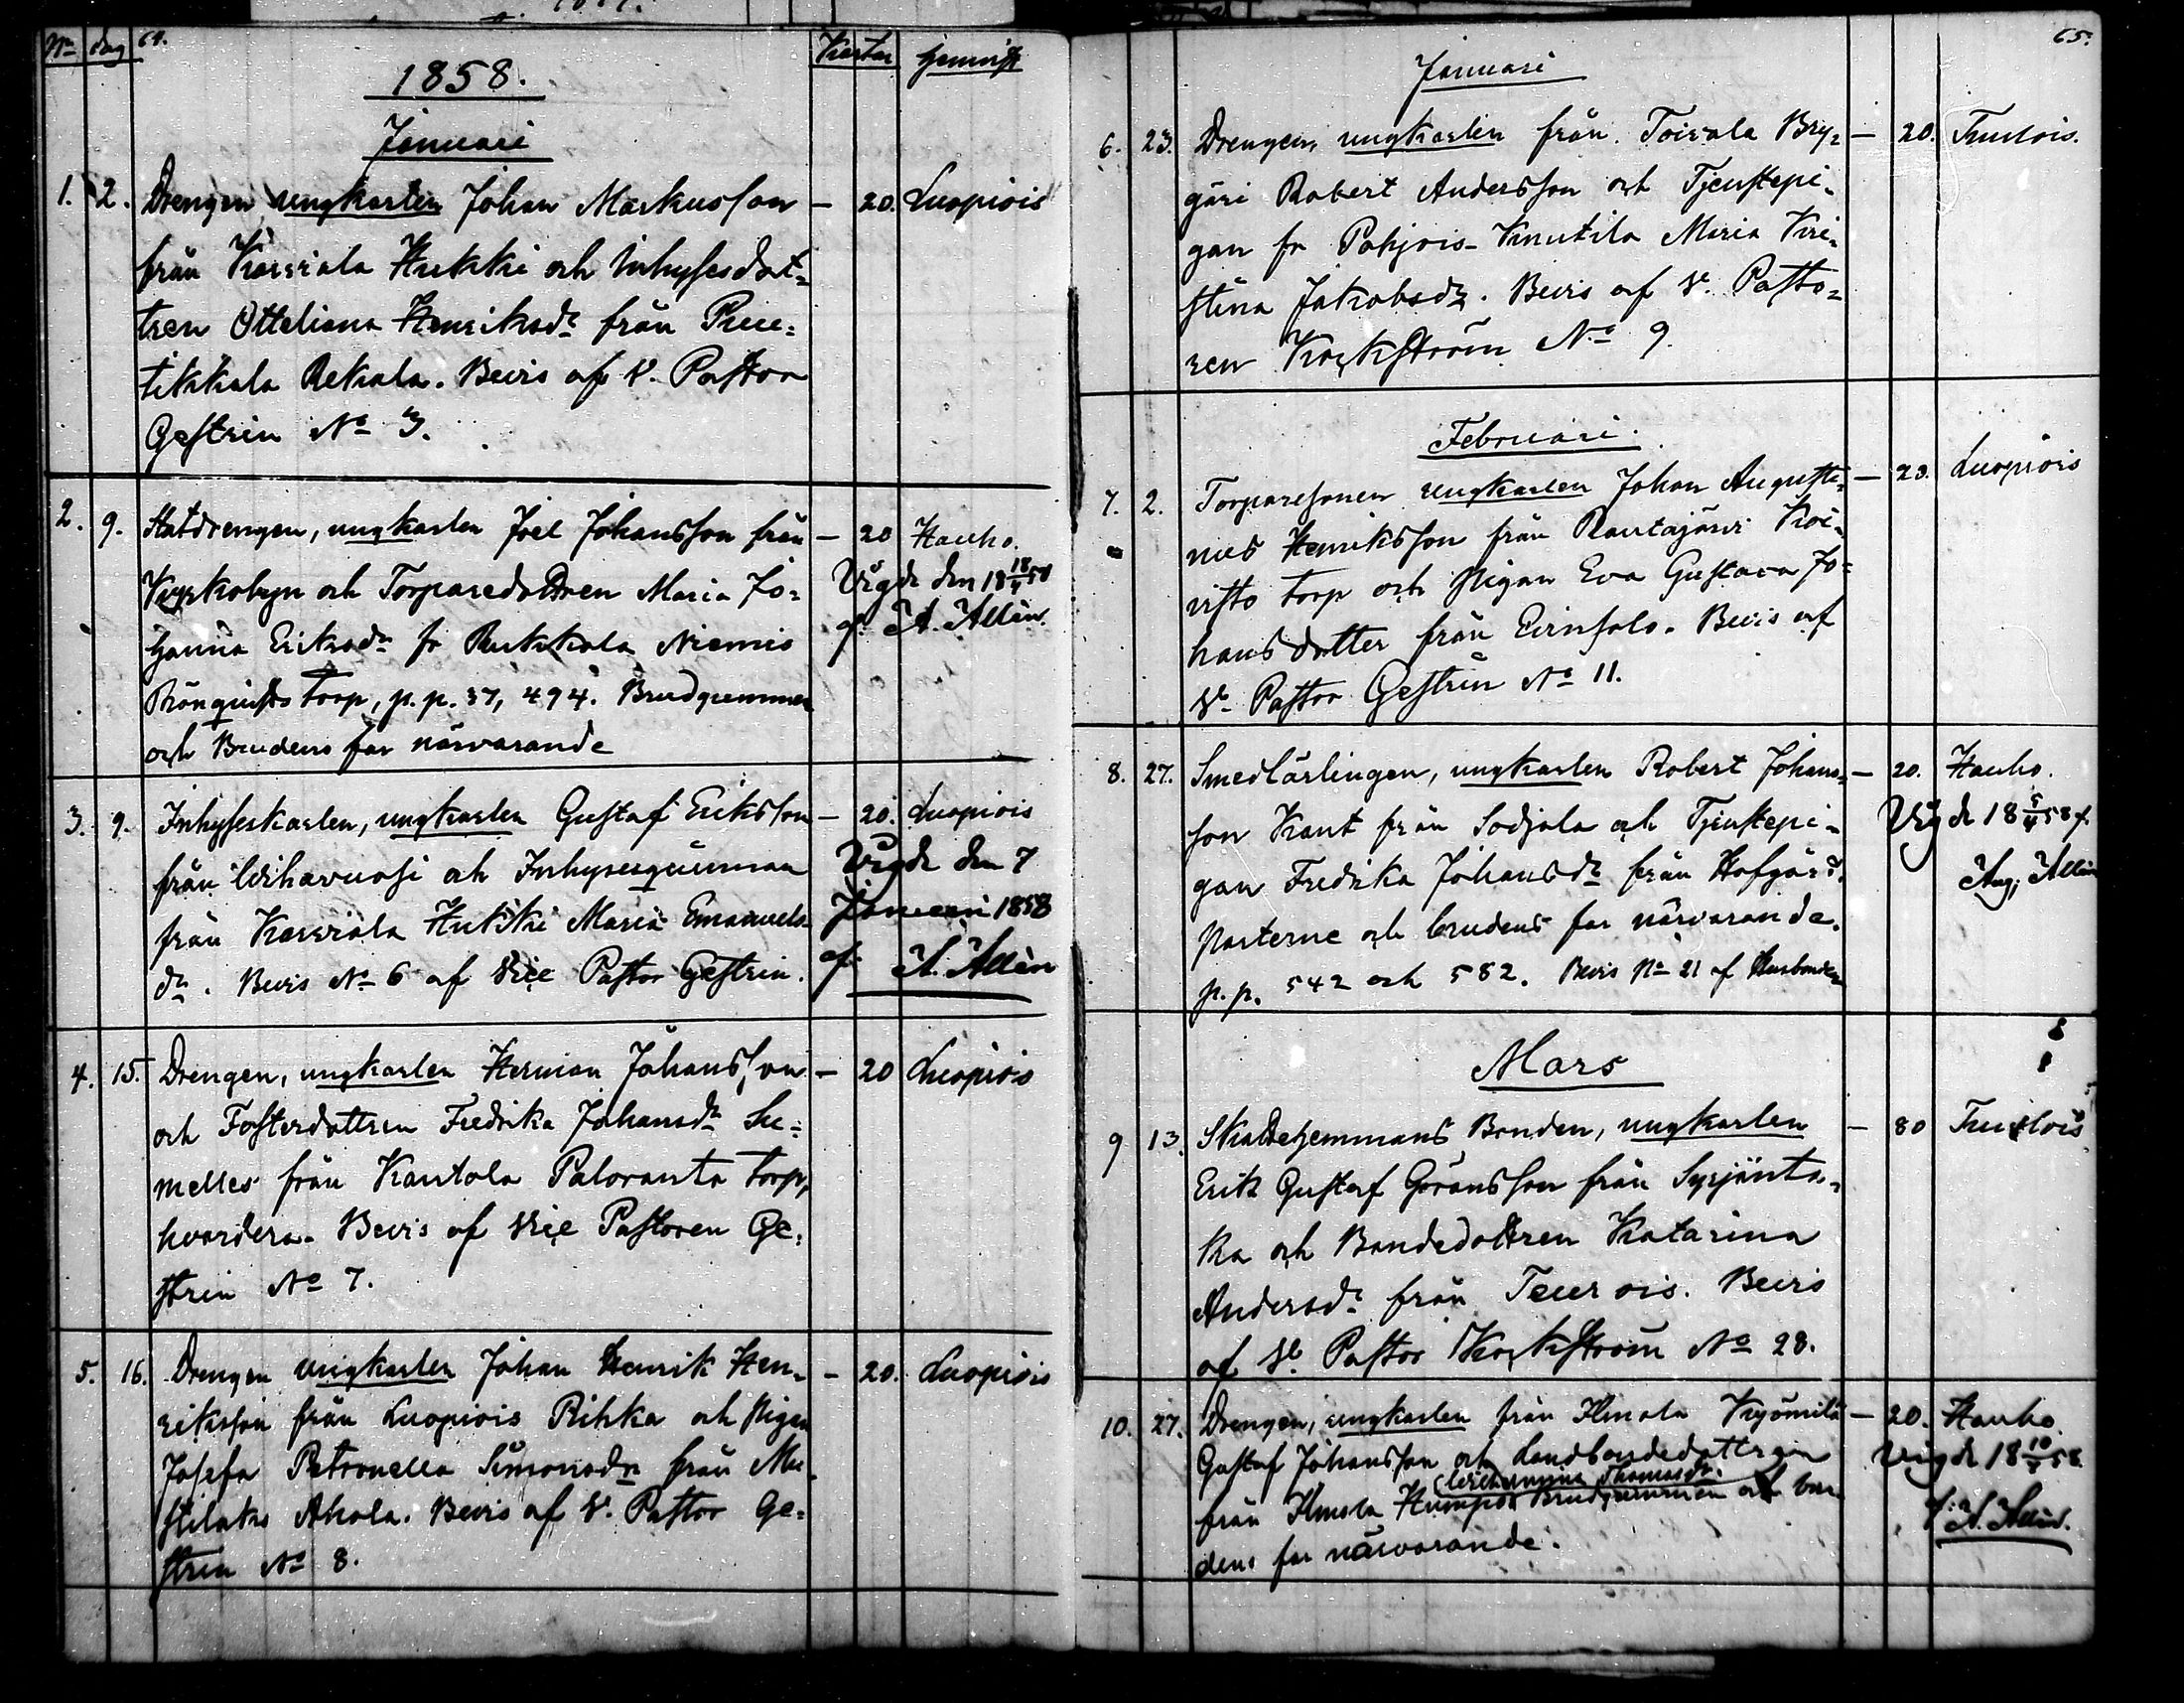 No dag 64.
1858.
Januari
1. 2. Drengen ungkarlen Johan Markusson — 20. Luopiois
från Karviala Hukki och Inhysesdot=
tren Otteliana Henriksdr från Puu=
tikkala Rekola. Bevis af V. Pastor
Gestrin No 3.
2. 9. Statdrengen, ungkarlen Joel Johansson från — 20 Hauho.
Kyrkobyn och Torparedottren Maria Jo=
hanna Eriksdr fr Rukkola Niemis
Rönquists torp, p. p. 37, 494. Brudgummen
och Brudens far närvarande
Vigde den
af A. Allén
3. 9. Inhyseskarlen, ungkarlen Gustaf Eriksson — 20. Luopiois
från Vihavuosi och Inhysesqvinnan
från Karviala Hukki Maria Emanuels-
dr. Bevis No 6 af Vice Pastor Gestrin.
Vigde den 7
Januari 1858
af A. Allén
4. 15. Drengen, ungkarlen Herman Johansson — 20 Luopiois
och Fosterdottren Fredrika Johansdr Su=
melles från Kantola Paloranta torp,
hvardera. Bevis af Vice Pastoren Ge=
strin No 7.
5. 16. Drengen ungkarlen Johan Henrik Hen= — 20. Luopiois
riksson från Luopiois Rihko och Pigan
Josefa Petronella Simonsdr från Mu=
stilaks Ahola. Bevis af V. Pastor Ge=
strin No 8.
65.
Januari
6. 23. Drengen, ungkarlen från Toivala Bry= — 20. Tuulois.
gäri Robert Andersson och Tjenstepi=
gan fr Pohjois-Knutila Maria Kri=
stina Jakobsdr. Bevis af V. Pasto=
ren Korkström No 9.
Februari.
7. 2. Torparesonen ungkarlen Johan Augusti= — 20. Luopiois
nus Henriksson från Rautajärvi Koi=
visto torp och Pigan Eva Gustava Jo=
hansdotter från Evinsalo. Bevis af
V. Pastor Gestrin No 11.
8. 27. Smedlärlingen, ungkarlen Robert Johans= — 20. Hauho.
son Kant från Sodjala och Tjenstepi=
gan Fredrika Johansdr från Hofgård.
Parterne och brudens far närvarande.
p. p. 542 och 582. Bevis No 21 af Husbonden
Vigde 18 5/4 58 f.
Aug. Allén
Mars
9 13. Skattehemmans Bonden, ungkarlen — 80 Tuulois
Erik Gustaf Göransson från Syrjänta=
ka och Bondedottren Katarina
Andersdr från Teuro
af V. Pastor Korkström No 28.
10. 27. Drengen, ungkarlen från Ilmola Kyömilä — 20. Hauho.
Gustaf Johansson och Landbondedottren
Vilhelmina Thomasdr.
från Ilmola Humppi Brudgummen och bru
dens far närvarande.
Vigde 18
f. A. Allén.